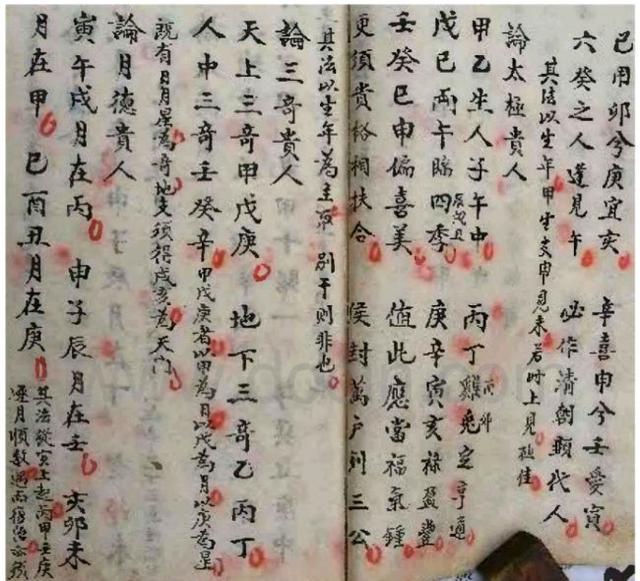 己用卯兮庚宜亥 辛喜申兮壬愛寅
六癸之人逢見午 必作清朝顯代人
其法以生年甲生支申見未若时上見極佳
論太極貴人
甲乙生人子午中 丙丁雞兔定亨通 酉卯
戊己兩午臨四季 辰戌丑 庚辛寅亥祿盈豊
壬癸巳申偏喜美 值此應當福氣鍾
更須貴格相扶合 侯封萬户到三公
其法以生年為主取别干則非也
論三奇貴人
天上三奇甲戊庚 地下三奇乙丙丁
人中三奇壬癸辛 甲戊庚者以甲為日以戊為月以庚為星
既有日月星為奇地支須得戌亥為天門
論月德貴人
寅午戌月在丙 申子辰月在壬 亥卯未
月在甲 巳酉丑月在庚 其法從寅上起丙甲壬庚
逐月順数週而復始